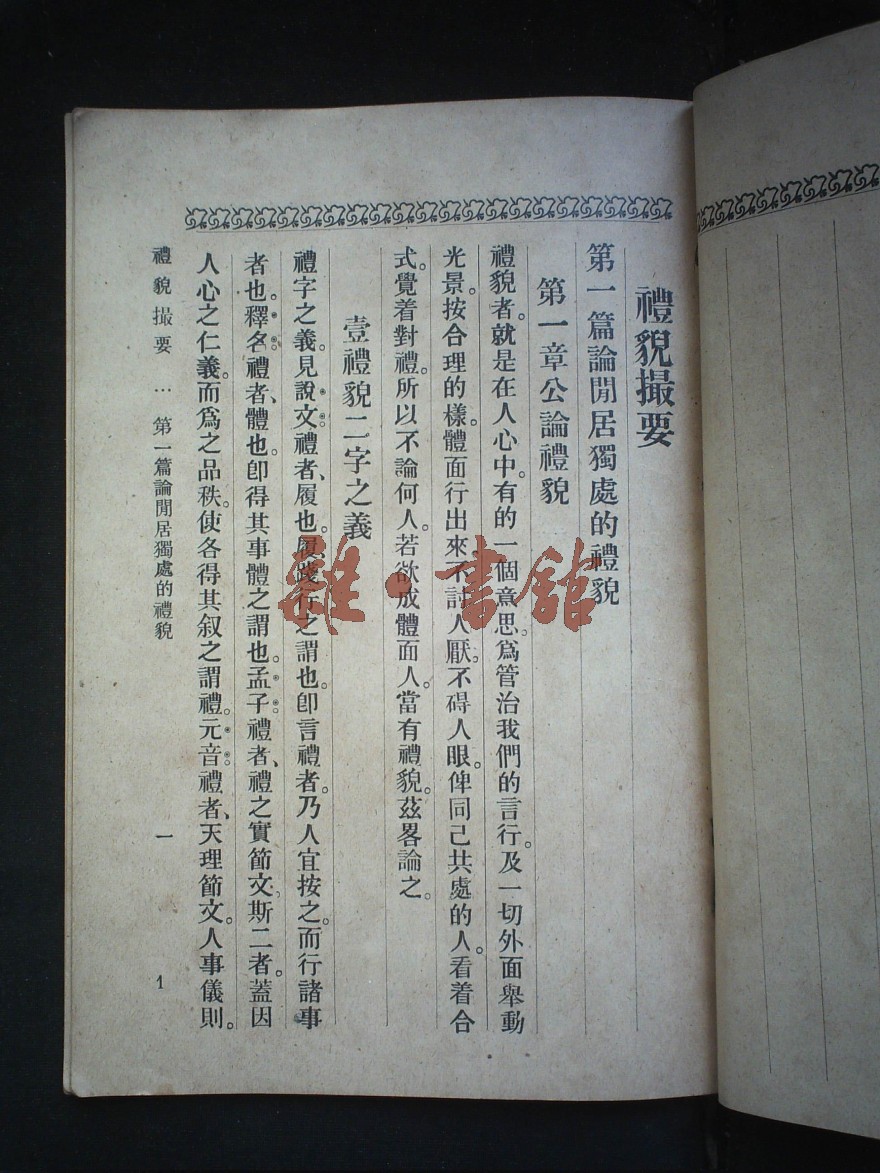 禮貌撮要
第一篇論閒居獨處的禮貌
第一章公論禮貌
禮貌者。就是在人心中。有的一個意思。爲管治我們的言行。及一切外面舉動
光景。按合理的樣。體面行出來。不討人厭。不碍人眼。俾同己共處的人。看着合
式。覺着對禮。所以不論何人。若欲成體面人。當有禮貌。茲畧論之。
壹禮貌二字之義
禮字之義。見說文禮者、履也。履踐行之謂也。卽言禮者。乃人宜按之。而行諸事
者也。釋名禮者、體也。卽得其事體之謂也。孟子禮者、禮之實節文。斯二者。蓋因
人心之仁義。而爲之品秩。使各得其叙之謂禮。元音禮者、天理節文。人事儀則。
禮貌撮要 … 第一篇論閒居獨處的禮貌 一 1
雜·書館